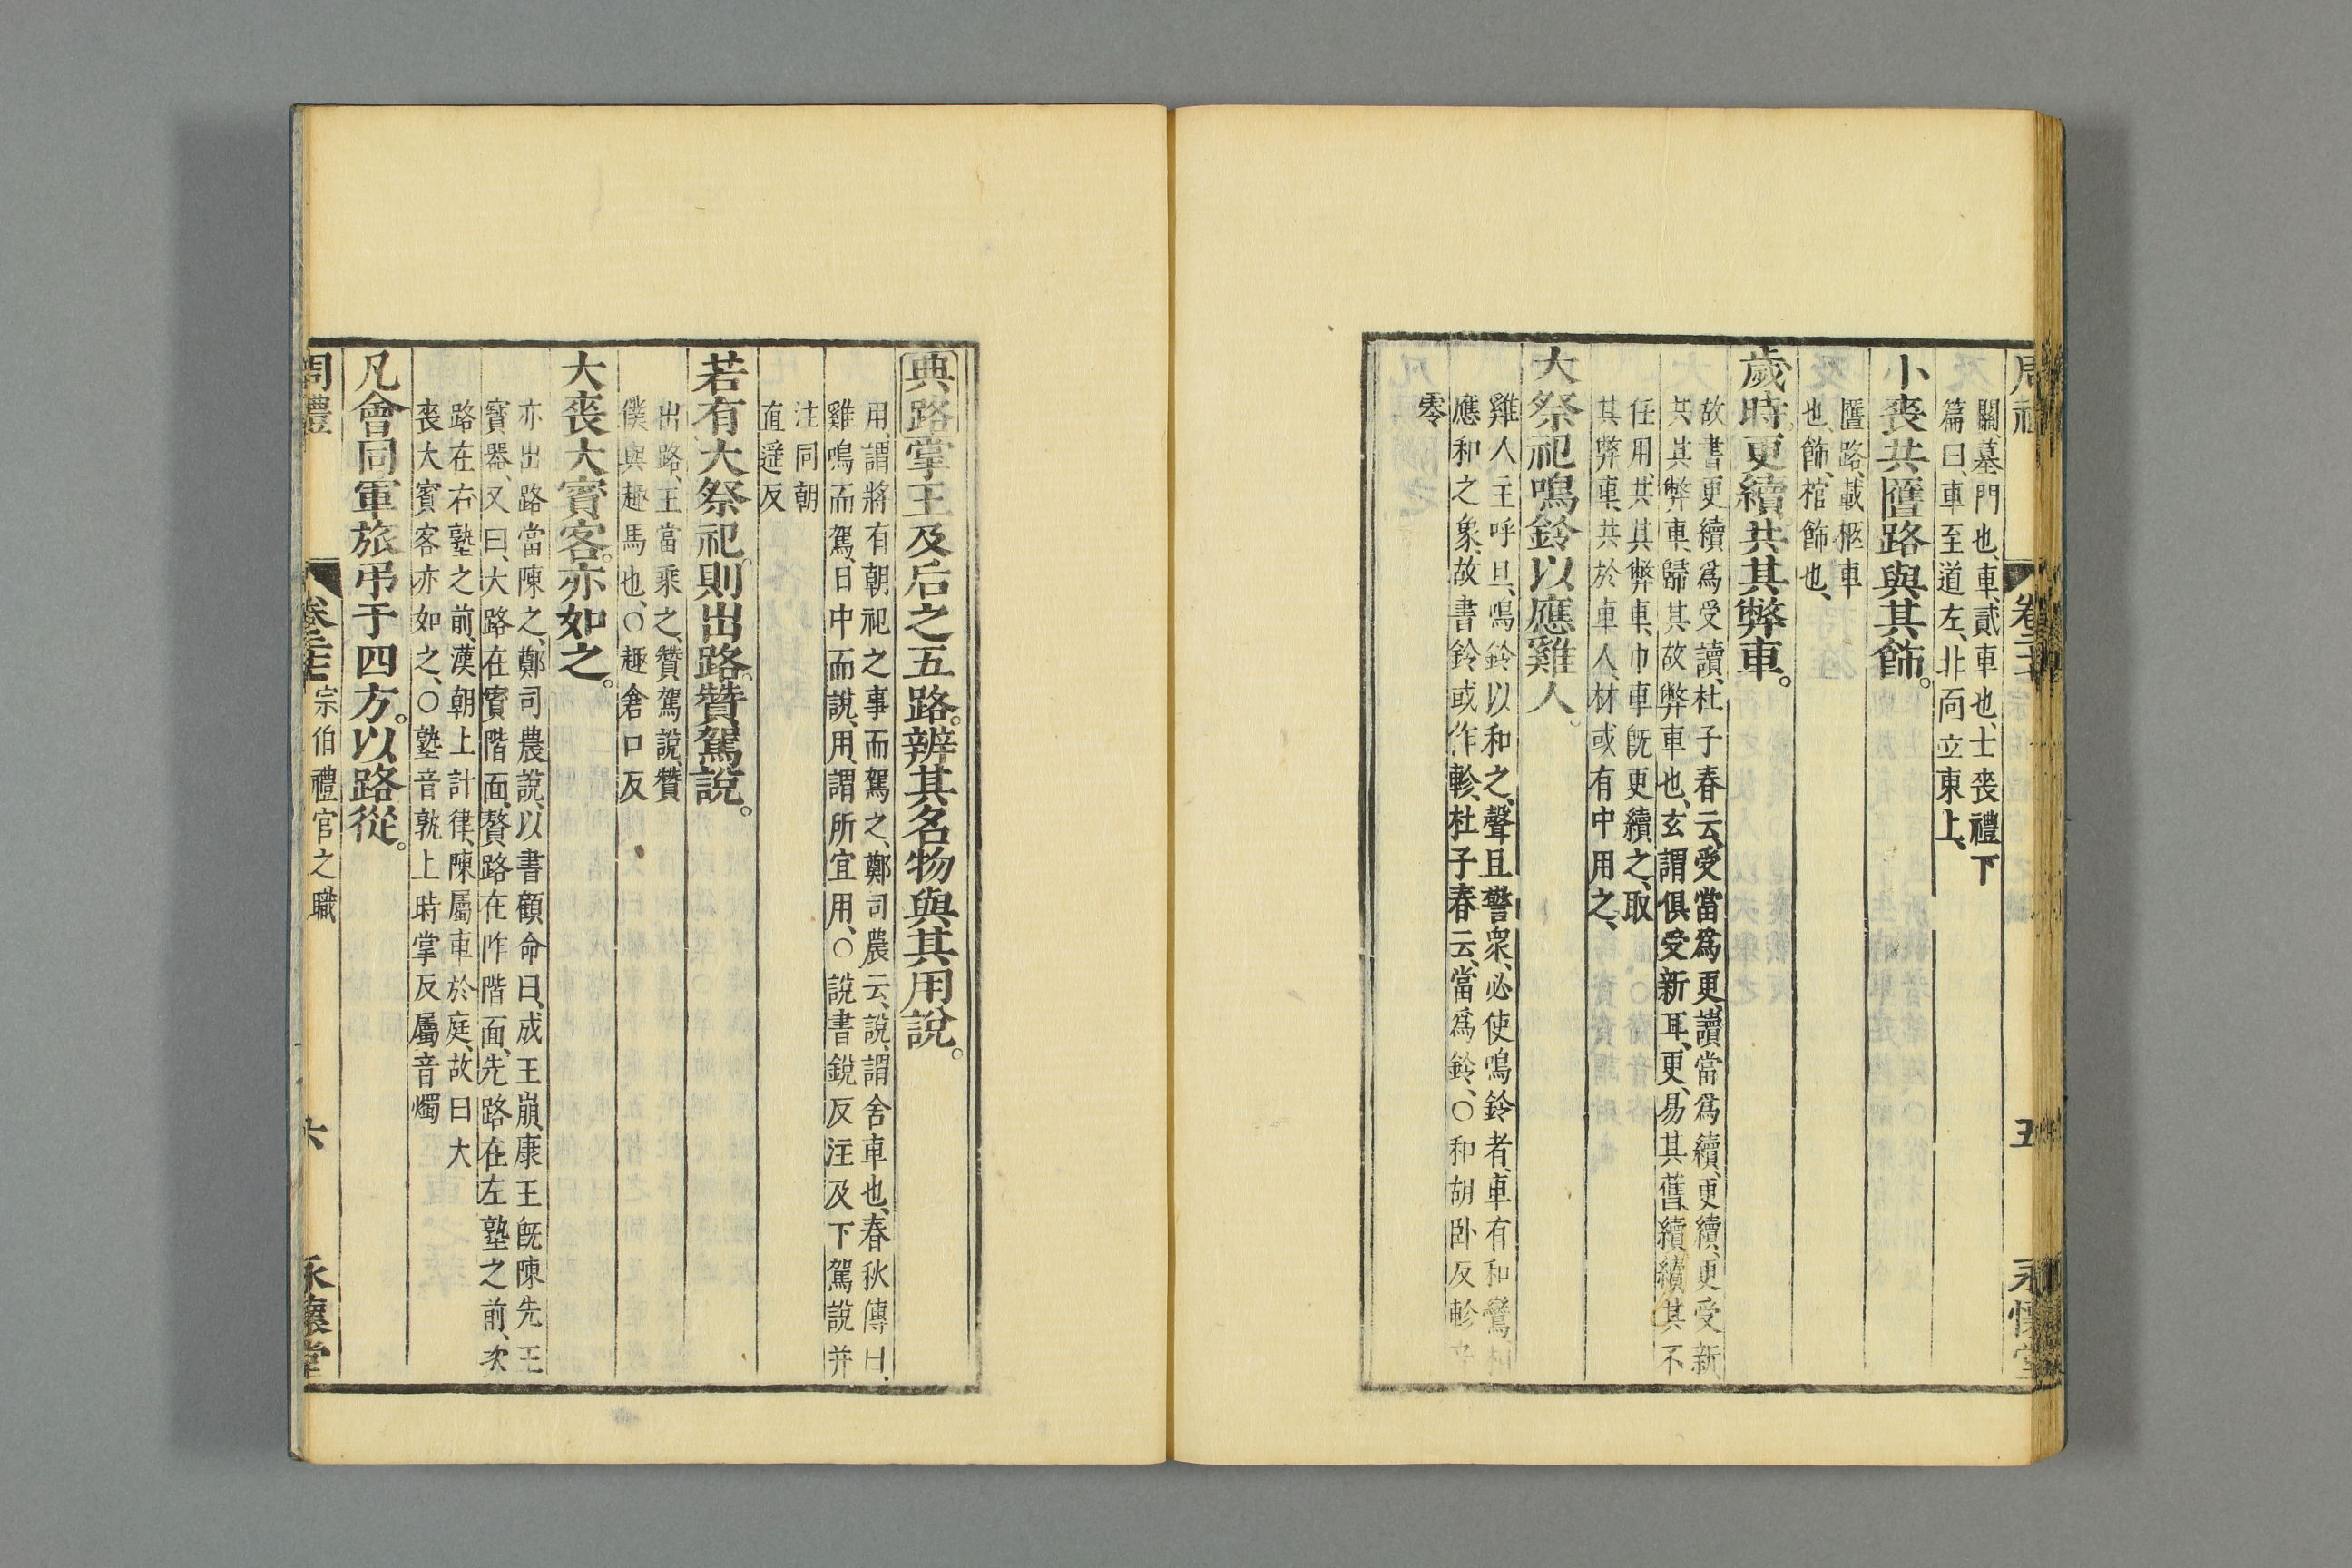 周禮 卷二十七 五 永懷堂
關墓門也、車、貳車也、士喪禮下
篇曰、車至道左、北靣立東上、
小喪共匶路與其飾。
匶路、載柩車
也、飾、棺飾也、
歲時更續共其弊車。
故書更續爲受讀、杜子春云、受當爲更、讀當爲續、更續、更受新
共其弊車、歸其故弊車也、玄謂俱受新耳、更、易其舊、續、續其不
任用、共其弊車、巾車旣更續之、取
其弊車、共於車人、材或有中用之、
大祭祀鳴鈴以應雞人。
雞人主呼旦、鳴鈴以和之、聲且警衆、必使鳴鈴者、車有和鸞相
應和之象、故書鈴或作軨、杜子春云、當爲鈴、○和胡卧反軨音
零
典路掌王及后之五路。辨其名物與其用說。
用、謂將有朝祀之事而駕之、鄭司農云、說、謂舍車也、春秋傳曰、
雞鳴而駕、日中而說、用、謂所宜用、○說書銳反注及下駕說并
注同朝
直遥反
若有大祭祀。則出路。贊駕說。
出路、王當乘之、贊駕說、贊
僕與趣馬也、○趣倉口反
大喪大賓客。亦如之。
亦出路當陳之、鄭司農說、以書顧命曰、成王崩、康王旣陳先王
寶器、又曰、大路在賓階面、贅路在阼階面、先路在左塾之前、次
路在右塾之前、漢朝上計律、陳屬車於庭、故曰大
喪大賓客亦如之、○塾音孰上時掌反屬音燭
凡會同軍旅吊于四方。以路從。
周禮 卷二十七 宗伯禮官之職 六 永懷堂